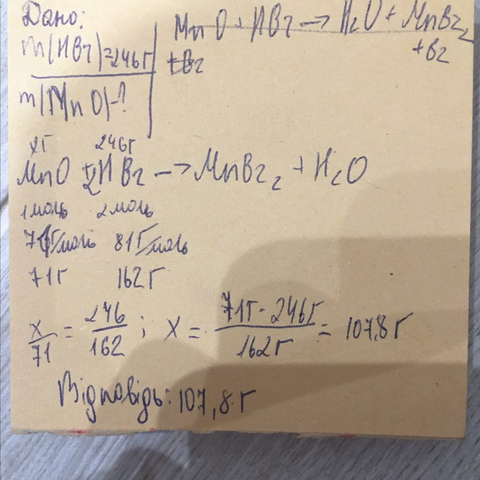 Дано:
m(HBr)=246г
m(MnO)-?
MnO + HBr → H2O + MnBr2
+Br
+Br2
xг 246г
MnO + 2HBr → MnBr2 + H2O
1моль 2моль
71г/моль 81г/моль
71г 162г
x/71 = 246/162 ; x = 71г · 246г / 162г = 107,8г
Відповідь: 107,8г